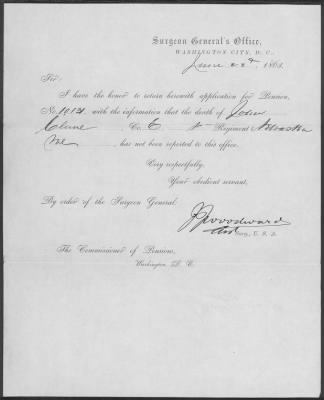 Surgeon General's Office,
WASHINGTON CITY, D. C.
June 22d, 1863.
Sir:
I have the honor to return herewith application for Pension,
No. 19121, with the information that the death of John
Clune Co. C 1 Regiment Nebraska
has not been reported to this office.
Very respectfully,
Your obedient servant,
By order of the Surgeon General:
J J Woodward
Asst Surg. U. S. A.
The Commissioner of Pensions,
Washington, D. C.